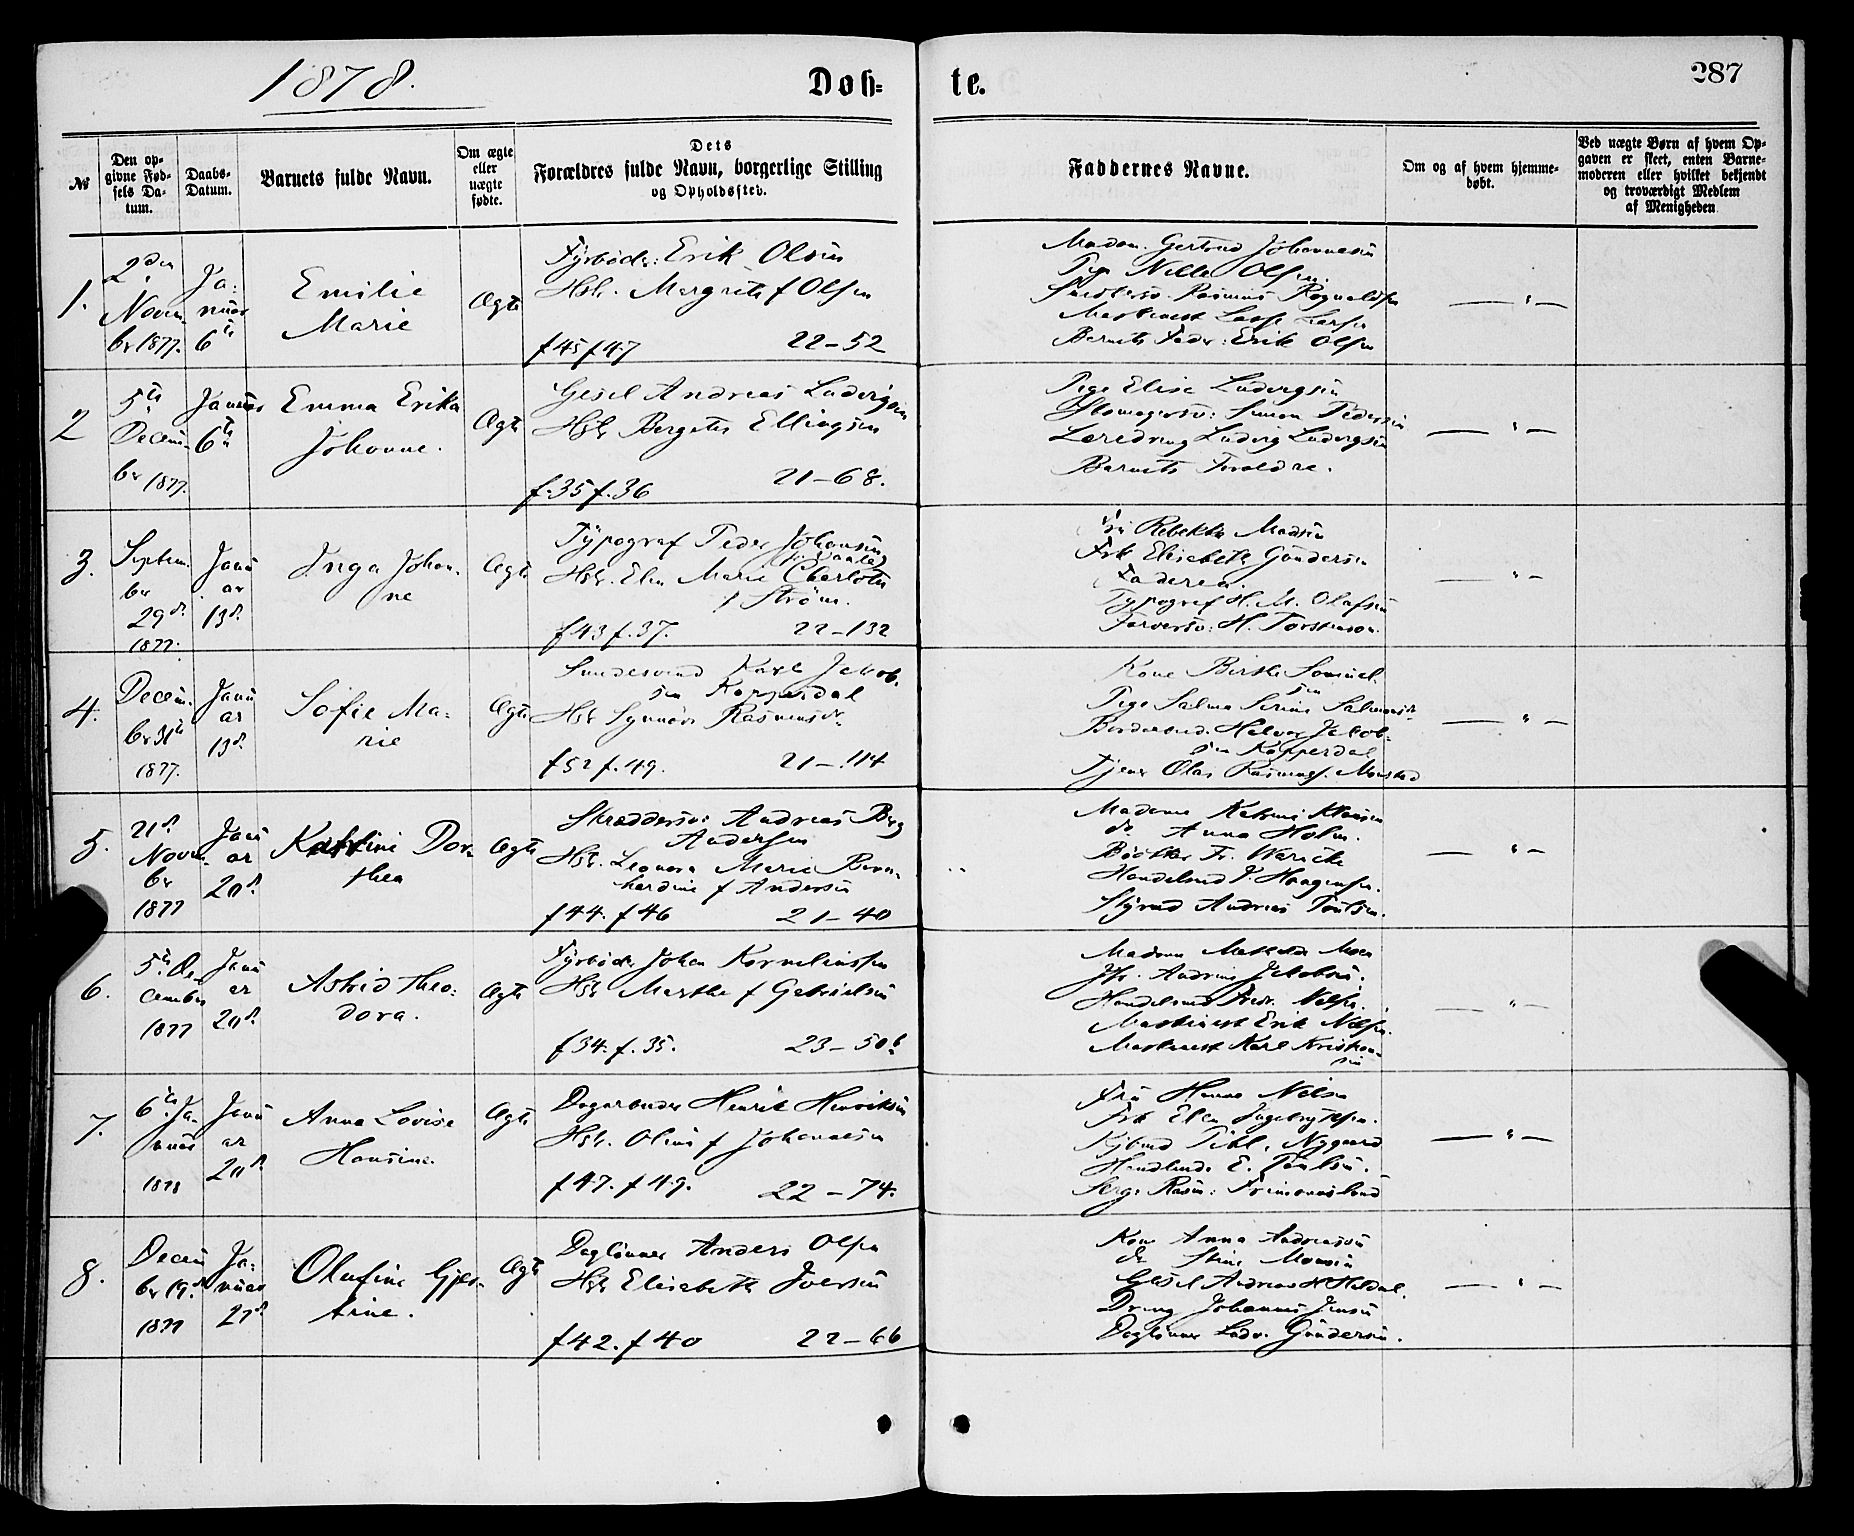 1878.
Døb=
te.
287
№
Den op-
givne Fød-
sels Da-
tum.
Daabs-
Datum.
Barnets fulde Navn.
Om ægte
eller
uægte
fødte.
Dets
Forældres fulde Navn, borgerlige Stilling
og Opholdssted.
Faddernes Navne.
Om og af hvem hjemme-
døbt.
Ved uægte Børn af hvem Op-
gaven er skeet, enten Barne-
moderen eller hvilket bekjendt
og troværdigt Medlem
af Menigheden
1.
2den
Novem
br 1877.
Ja=
nuar
6te
Emilie
Marie
Ægte
Fyrbøder: Erik Olsen
Hstr. Margrete f Olsen
f 45 f 47 22–52
Madam. Gertrud Johannesen
Pige Nille Olsen
Rasmus Rognaldsen
Maskinist Lasse Larsen
Barnets Fader: Erik Olsen
— " —
2
5te
Decem-
br 1877.
Januar
6te
Emma Erika
Johanne.
Ægte
Gesel Andreas Ludvigsen
Hstr Bergete Ellingsen
f. 35 f. 36 21–68.
Pige Elise Ludvigsen
Skomagersv: Simon Pedersen
Læredreng Ludvig Ludvigsen
Barnets Forældre.
— " —
3.
Septem
br
29d.
1877.
Janu
ar
13d.
Inga Johan-
ne
Ægte
Typograf Peder Johansen
Hstr. Elen Marie Charlotte
f Strøm.
f 43 f. 37. 22–132
Fru Rebekka Madsen
Frk Elisabeth Gundersen
Faderen.
Typograf H. M. Olafsen
Farversv: H. Torstenson.
— " —
4.
Decem-
br 31te
1877.
Janu
ar
13d.
Sofie Ma=
rie
Ægte
Karl Jakob-
sen Kopperdal
Hstr Synnøve Rasmusdr.
f 52 f. 49. 21–114
Kone Birthe Samuel-
sen
Pige Salma Serine Salamonsdr.
Halvor Jakob-
sen Kopperdal
Tjener Olai Rasmuss. Monstad
— " —
5.
21d.
Novem-
br
1877
Janu
ar
20d.
Katrine Dor-
thea
Ægte
Skræddersv: Andreas Berg
Andersen
Hstr. Leonora Marie Bern-
hardine f Andersen
f 44. f 46 21–40
Madame Katrine Hansen
do Anna Holm.
Bødker Fr. Warncke
Handelsmd J. Haagensen.
Styrmd Andreas Poulsen.
— " —
6.
5te De-
cember
1877
Janu
ar
20d.
Astrid Theo=
dora.
Ægte
Fyrbøder Johan Korneliussen
Hstr Marthe f Gabrielsen
f 34. f. 35. 23–50b.
Madam Mathilde Moe
Jfr. Andrine Jakobsen.
Handelsmd Fredr. Nilsen.
Maskinist Erik Nilsen.
Maskinist Karl Kristian-
sen
— " —
7.
6te Ja-
nuar
1878
Janu
ar
20d.
Anna Lovise
Hansine.
Ægte
Dagarbeider Henrik Henriksen
Hstr. Oline f Johannesen
f 47. f 49. 22–74.
Fru Hanna Nilsen
Frk Elen Ingebrigtsen.
Kjbmd Nygaard
E. Poulsen.
Serg: Rasm: Frimanslund
— " —
8.
Decem
br 19d.
1877
Ja=
nuar
27d.
Olufine Gjer-
trine.
Ægte
Daglønner Anders Olsen
Hstr Elisabeth Iversen
f 42. f 40 22–66
Kone Anna Andreasen
do Stine Monsen
Gesel Andreas H. Heldal.
Dreng Johannes Jensen
Daglønner Ludv. Gundersen.
— " —